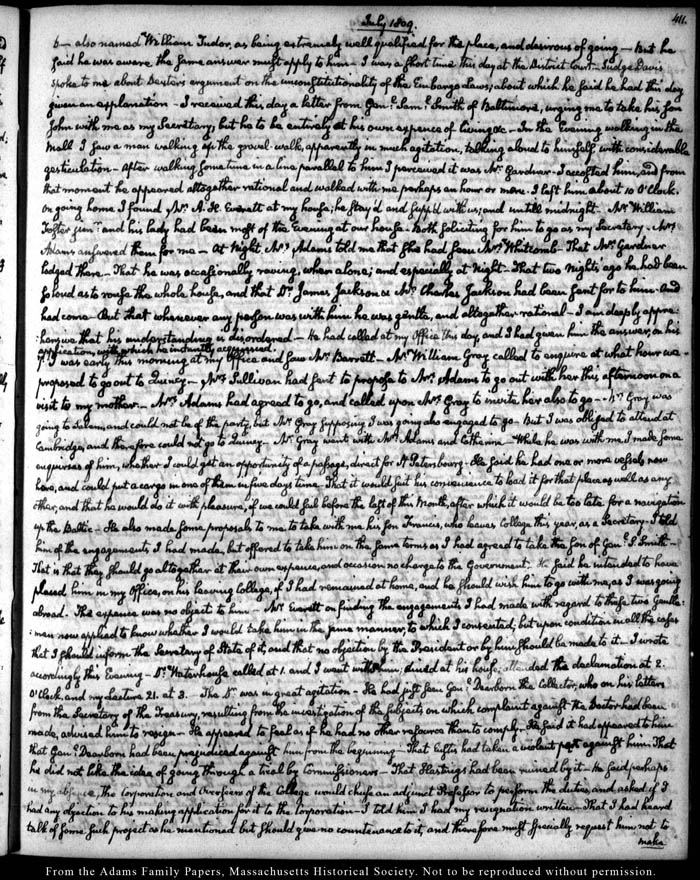 July 1809.
411.
6— also named Wm William Tudor, as being extremely well qualified for the place, and desirous of going — But he
said he was aware the same answer must apply to him — I was a short time this day at the District Court — Judge Davis
spoke to me about Dexter's argument on the unconstitutionality of the Embargo Laws; about which he said he had this day
given an explanation — I received this day a letter from Genl. Saml. Smith of Baltimore, urging me to take his son
John with me as my Secretary, but he to be entirely at his own expence of living &c — In the Evening walking in the
Mall I saw a man walking up the gravel-walk, apparently in much agitation, talking aloud to himself with considerable
gesticulation — After walking sometime in a line parallel to him I perceived it was Mr. Gardner — I accosted him, and from
that moment he appeared altogether rational and walked with me perhaps an hour or more. I left him about 10 O'Clock.
On going home I found Mr. A. H. Everett at my house; he stay'd and supp'd with us; and untill midnight — Mr. William
Foster junr. and his lady had been most of the evening at our house — Both soliciting for him to go as my Secretary — Mrs.
Adams answered them for me — At Night, Mrs. Adams told me that she had seen Mrs. Whitcomb — That Mr. Gardner
lodged there — That he was occasionally raving, when alone; and especially at Night — That two Nights ago he had been
so loud as to rouse the whole house, and that Dr. James Jackson & Mr. Charles Jackson had been sent for to him — And
had come — But that whenever any person was with him he was gentle, and altogether rational — I am deeply appre-
hensive that his understanding is disordered — He had called at my Office this day, and I had given him the answer, on his
application, with which he instantly acquiesced
7. I was early this morning at my office and saw Mr. Barrett — Mr. William Gray called to enquire at what hour we
proposed to go out to Quincy — Mrs. Sullivan had sent to propose to Mrs. Adams to go out with her this afternoon on a
visit to my mother — Mrs. Adams had agreed to go, and called upon Mrs. Gray to invite her also to go — Mr. Gray was
going to Salem, and could not be of the party, but Mrs. Gray supposing I was going also engaged to go — But I was obliged to attend at
Cambridge, and therefore could not go to Quincy — Mrs. Gray went with Mrs. Adams and Catherine — While he was with me, I made some
enquiries of him, whether I could get an opportunity of a passage, direct for St. Petersburg — He said he had one or more vessels now
here, and could put a cargo in one of them in five days time. That it would suit his convenience to load it for that place as well as any
other, and that he would do it with pleasure, if we could sail before the last of this Month, after which it would be too late for a navigation
up the Baltic — He also made some proposals to me to take with me his son Francis, who leaves College this year, as a Secretary — I told
him of the engagements I had made, but offered to take him on the same terms as I had agreed to take the son of Genl. S. Smith —
That is that they should go altogether at their own expence, and occasion no charge to the Government. He said he intended to have
placed him in my Office, on his leaving College, if I had remained at home, and he should wish him to go with me, as I was going
abroad. The expence was no object to him — Mr. Everett on finding the engagements I had made with regard to these two Gentle-
men now applied to know whether I would take him in the same manner, to which I consented; but upon condition in all the cases
that I should inform the Secretary of State of it, and that no objection by the President or by him, should be made to it — I wrote
accordingly this Evening — Dr. Waterhouse called at 1. and I went with him; dined at his house; attended the declamation at 2.
O'Clock, and my Lecture 21. at 3. — The Dr. was in great agitation — He had just seen Genl. Dearborn the Collector, who on his letters
from the Secretary of the Treasury, resulting from the investigation of the subjects on which complaint against the Doctor had been
made, advised him to resign — He appeared to feel as if he had no other resource than to comply. He said it had appeared to him
that Genl. Dearborn had been prejudiced against him from the beginning — That Eustis had taken a violent part against him. That
he did not like the idea of going through a trial by Commissioners — That Hastings had been ruined by it — He said perhaps
in my absence, the Corporation and Overseers of the College would chuse an adjunct Professor to perform the duties, and asked if I
had any objection to his making application for it to the Corporation — I told him I had my resignation written — That I had heard
talk of some such project as he mentioned but should give no countenance to it, and therefore must specially request him not to
make
From the Adams Family Papers, Massachusetts Historical Society. Not to be reproduced without permission.